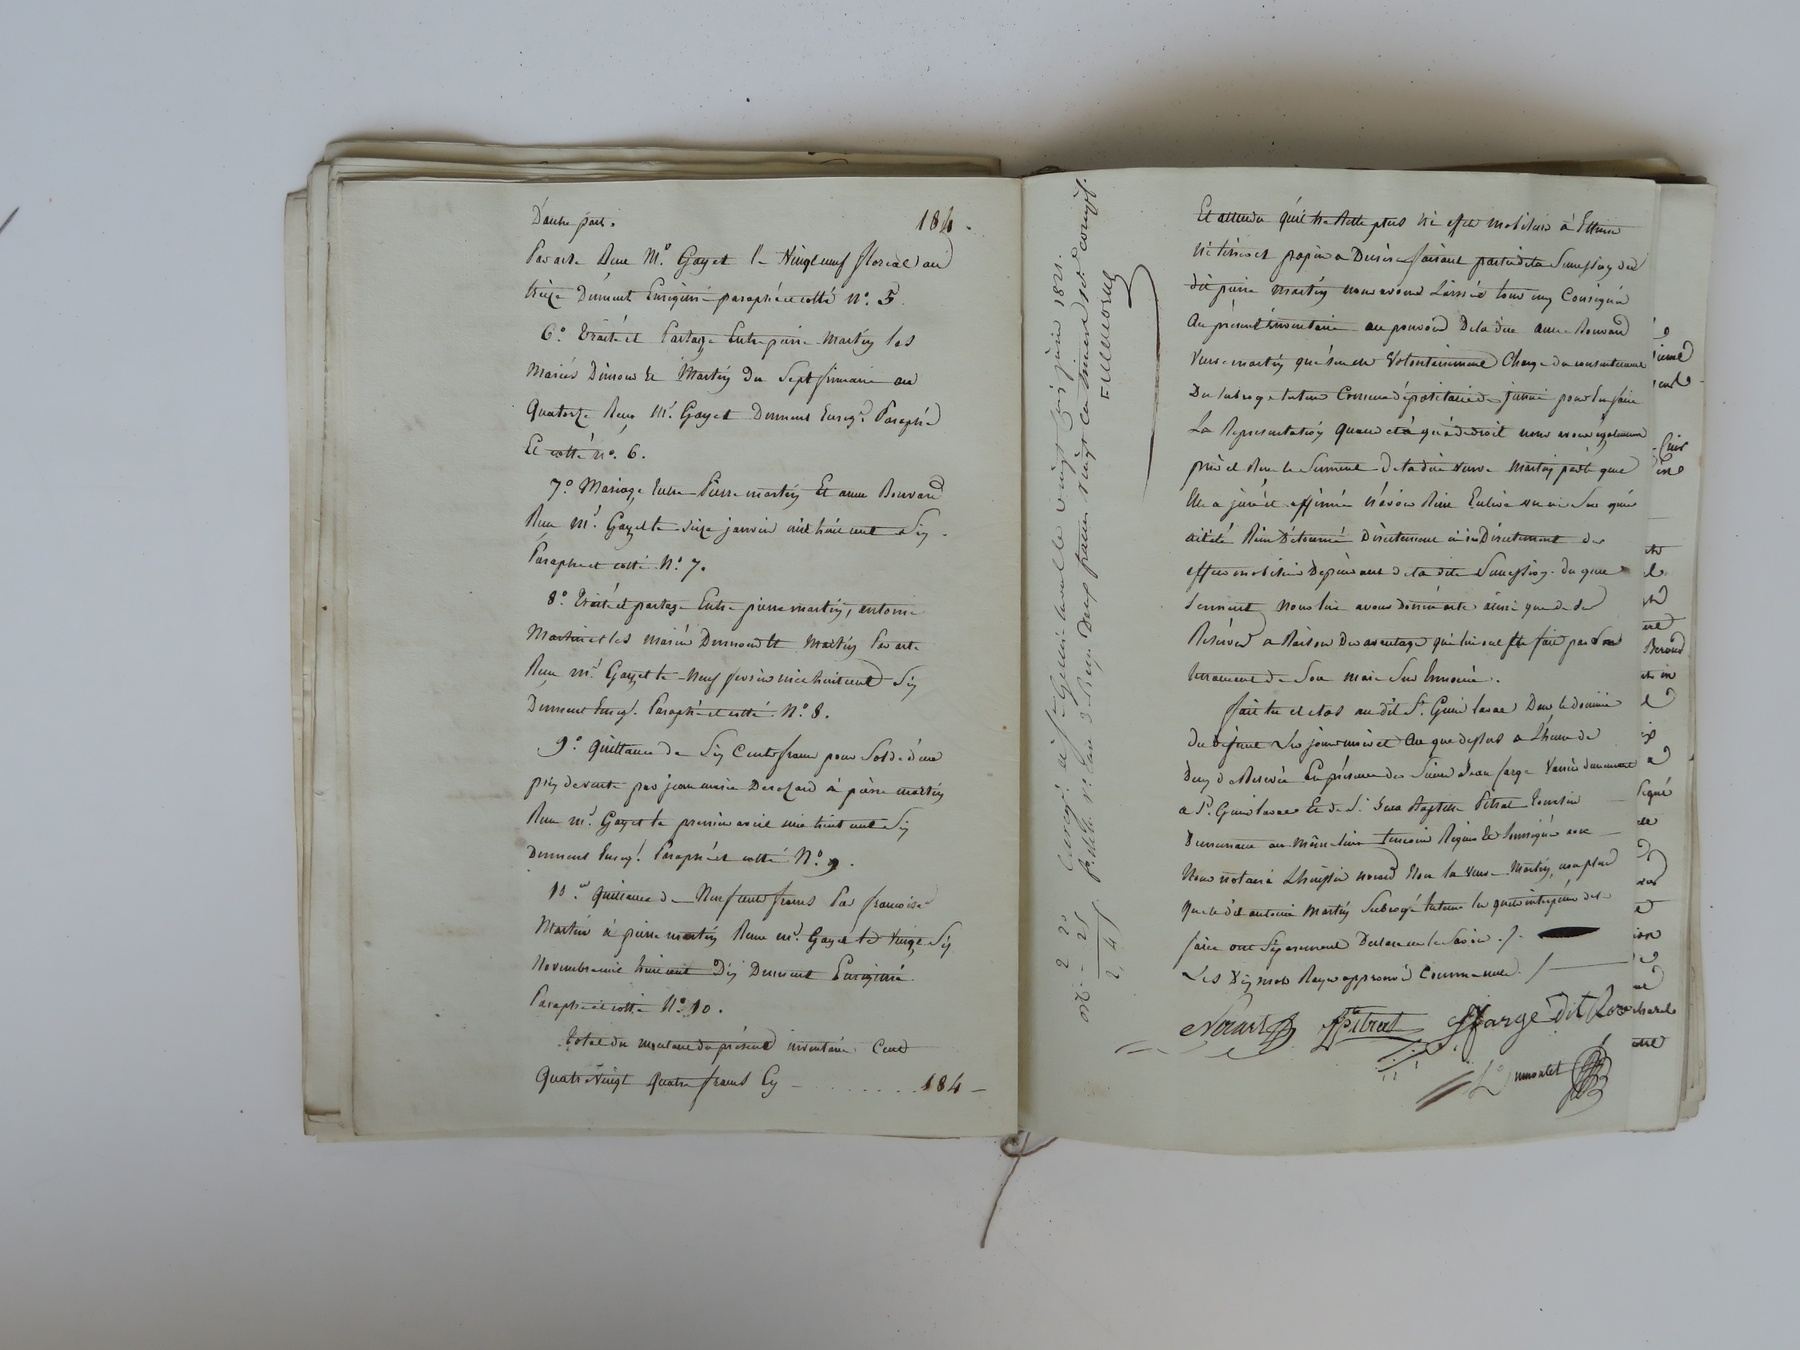 D'autre part. 184.
Par acte Reçu Mr. Gayet le Vingt neuf floréal an
treize Duement Enrigistré paraphé et cotté No. 5.
6o. Traité et Partage Entre pierre Martin les
Mariés Dumoulet Martin du Sept frimaire an
Quatorze Reçu Mr. Gayet Duement Enregt. Paraphé
Et cotté no. 6.
7o. Mariage Entre Pierre martin Et anne Bonnard
Reçu Mr. Gayet le seize janvier mil huit cent Six
Paraphé et cotté No. 7.
8o. Traité et partage Entre pierre martin, antoine
Martin et les mariés Dumoulet Martin Par acte
Reçu mr. Gayet le Neuf février mil huit cent Six
Duement Enregt. Paraphé et cotté No. 8.
9o. Quittance de Six Cents francs pour Solde d'un
prix de vente par jean marie à pierre martin
Reçu mr. Gayet le premier avril mil huit cent Six
Duement Enregt. Paraphé et cotté No. 9.
10o. Quittance de Neuf cents francs Par françoise
Martin à pierre martin Reçu mr. Gayet le Vingt Six
Novembre mil huit cent Dix Duement Enrigistré
Paraphé et cotté No. 10.
Total du montant du présent inventaire Cent
Quatre Vingt Quatre francs Cy - ....... 184 -
Enregé. à St. Genis laval le vingt juin 1821.
fo. Vo. Case 3. Reçu Deux francs vingt centimes dixe. compt.
2 20
22
2, 42
Et attendu qu'il ne Reste plus ni effet mobiliers à Estimer
ni titres et papiers a Décrire faisant partie de la Succession du
dit pierre martin nous avons Laissé le tout Consigné
Au présent inventaire au pouvoir De la dite anne Bonnard
Veuve martin qui s'en est Volontairement Chargée du consentement
Du subrogé tuteur Comme dépositaire de justice pour En faire
La Représentation quand et à qui de droit nous avons également
pris et Reçu le Serment de la dite veuve Martin par le quel
Elle a juré et affirmé n'avoir Rien Enlevé
été Rien Détourné Directement ni inDirectement des
effets mobiliers Dépendant de la dite Succession. du quel
Serment Nous lui avons donné acte ainsi que de ses
Réserves a Raison Des avantages qui lui ont été fait par
testament de Son mari Sus Enoncé.
fait lu et clos au dit St. Genis laval Dans le domicile
du défunt Les jour mois et An que dessus a L'heure de
Deux de Relevée En présence des Sieurs Jean farge demeurant
a St. Genis laval Et de Sr. Jean Baptiste Pitrat
Demeurant au même lieu témoins Requis Et Soussignés avec
Nous notaire Non la veuve Martin, non plus
Que le dit antoine Martin Subrogé tuteur
faire ont Séparement Declaré ne le Savoir. /.
Les Dix mots Rayés approuvé Comme nuls. /
Pitrat JFarge dit
Dumoulet